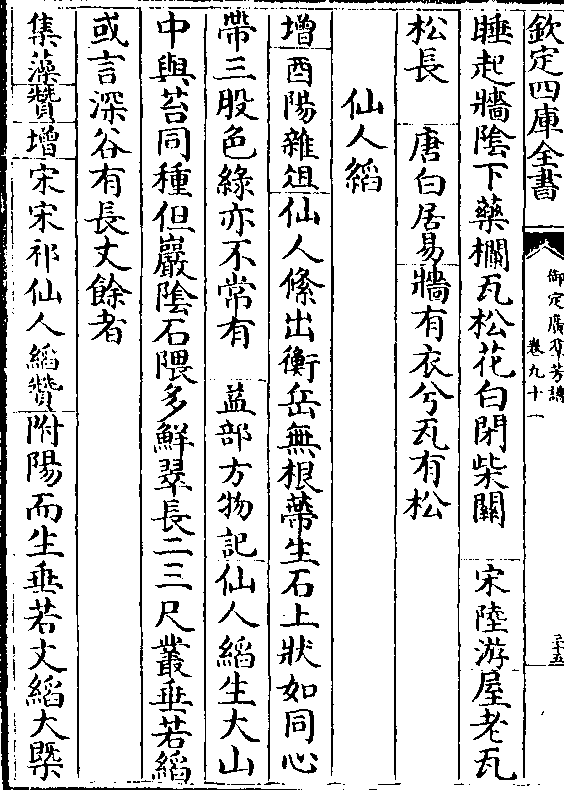 欽定四庫全書 御定廣羣芳譜 卷九十一 三十五
睡起牆陰下藥欄瓦松花白閉柴關 宋陸游屋老瓦
松長 唐白居易牆有衣兮瓦有松
仙人縚
增酉陽雜俎仙人絛出衡岳無根蔕生石上狀如同心
帶三股色綠亦不常有 益部方物記仙人縚生大山
中與苔同種但巖陰石隈多鮮翠長二三尺叢垂若縚
或言深谷有長丈餘者
集藻贊增宋宋祁仙人縚贊附陽而生垂若文縚大槩